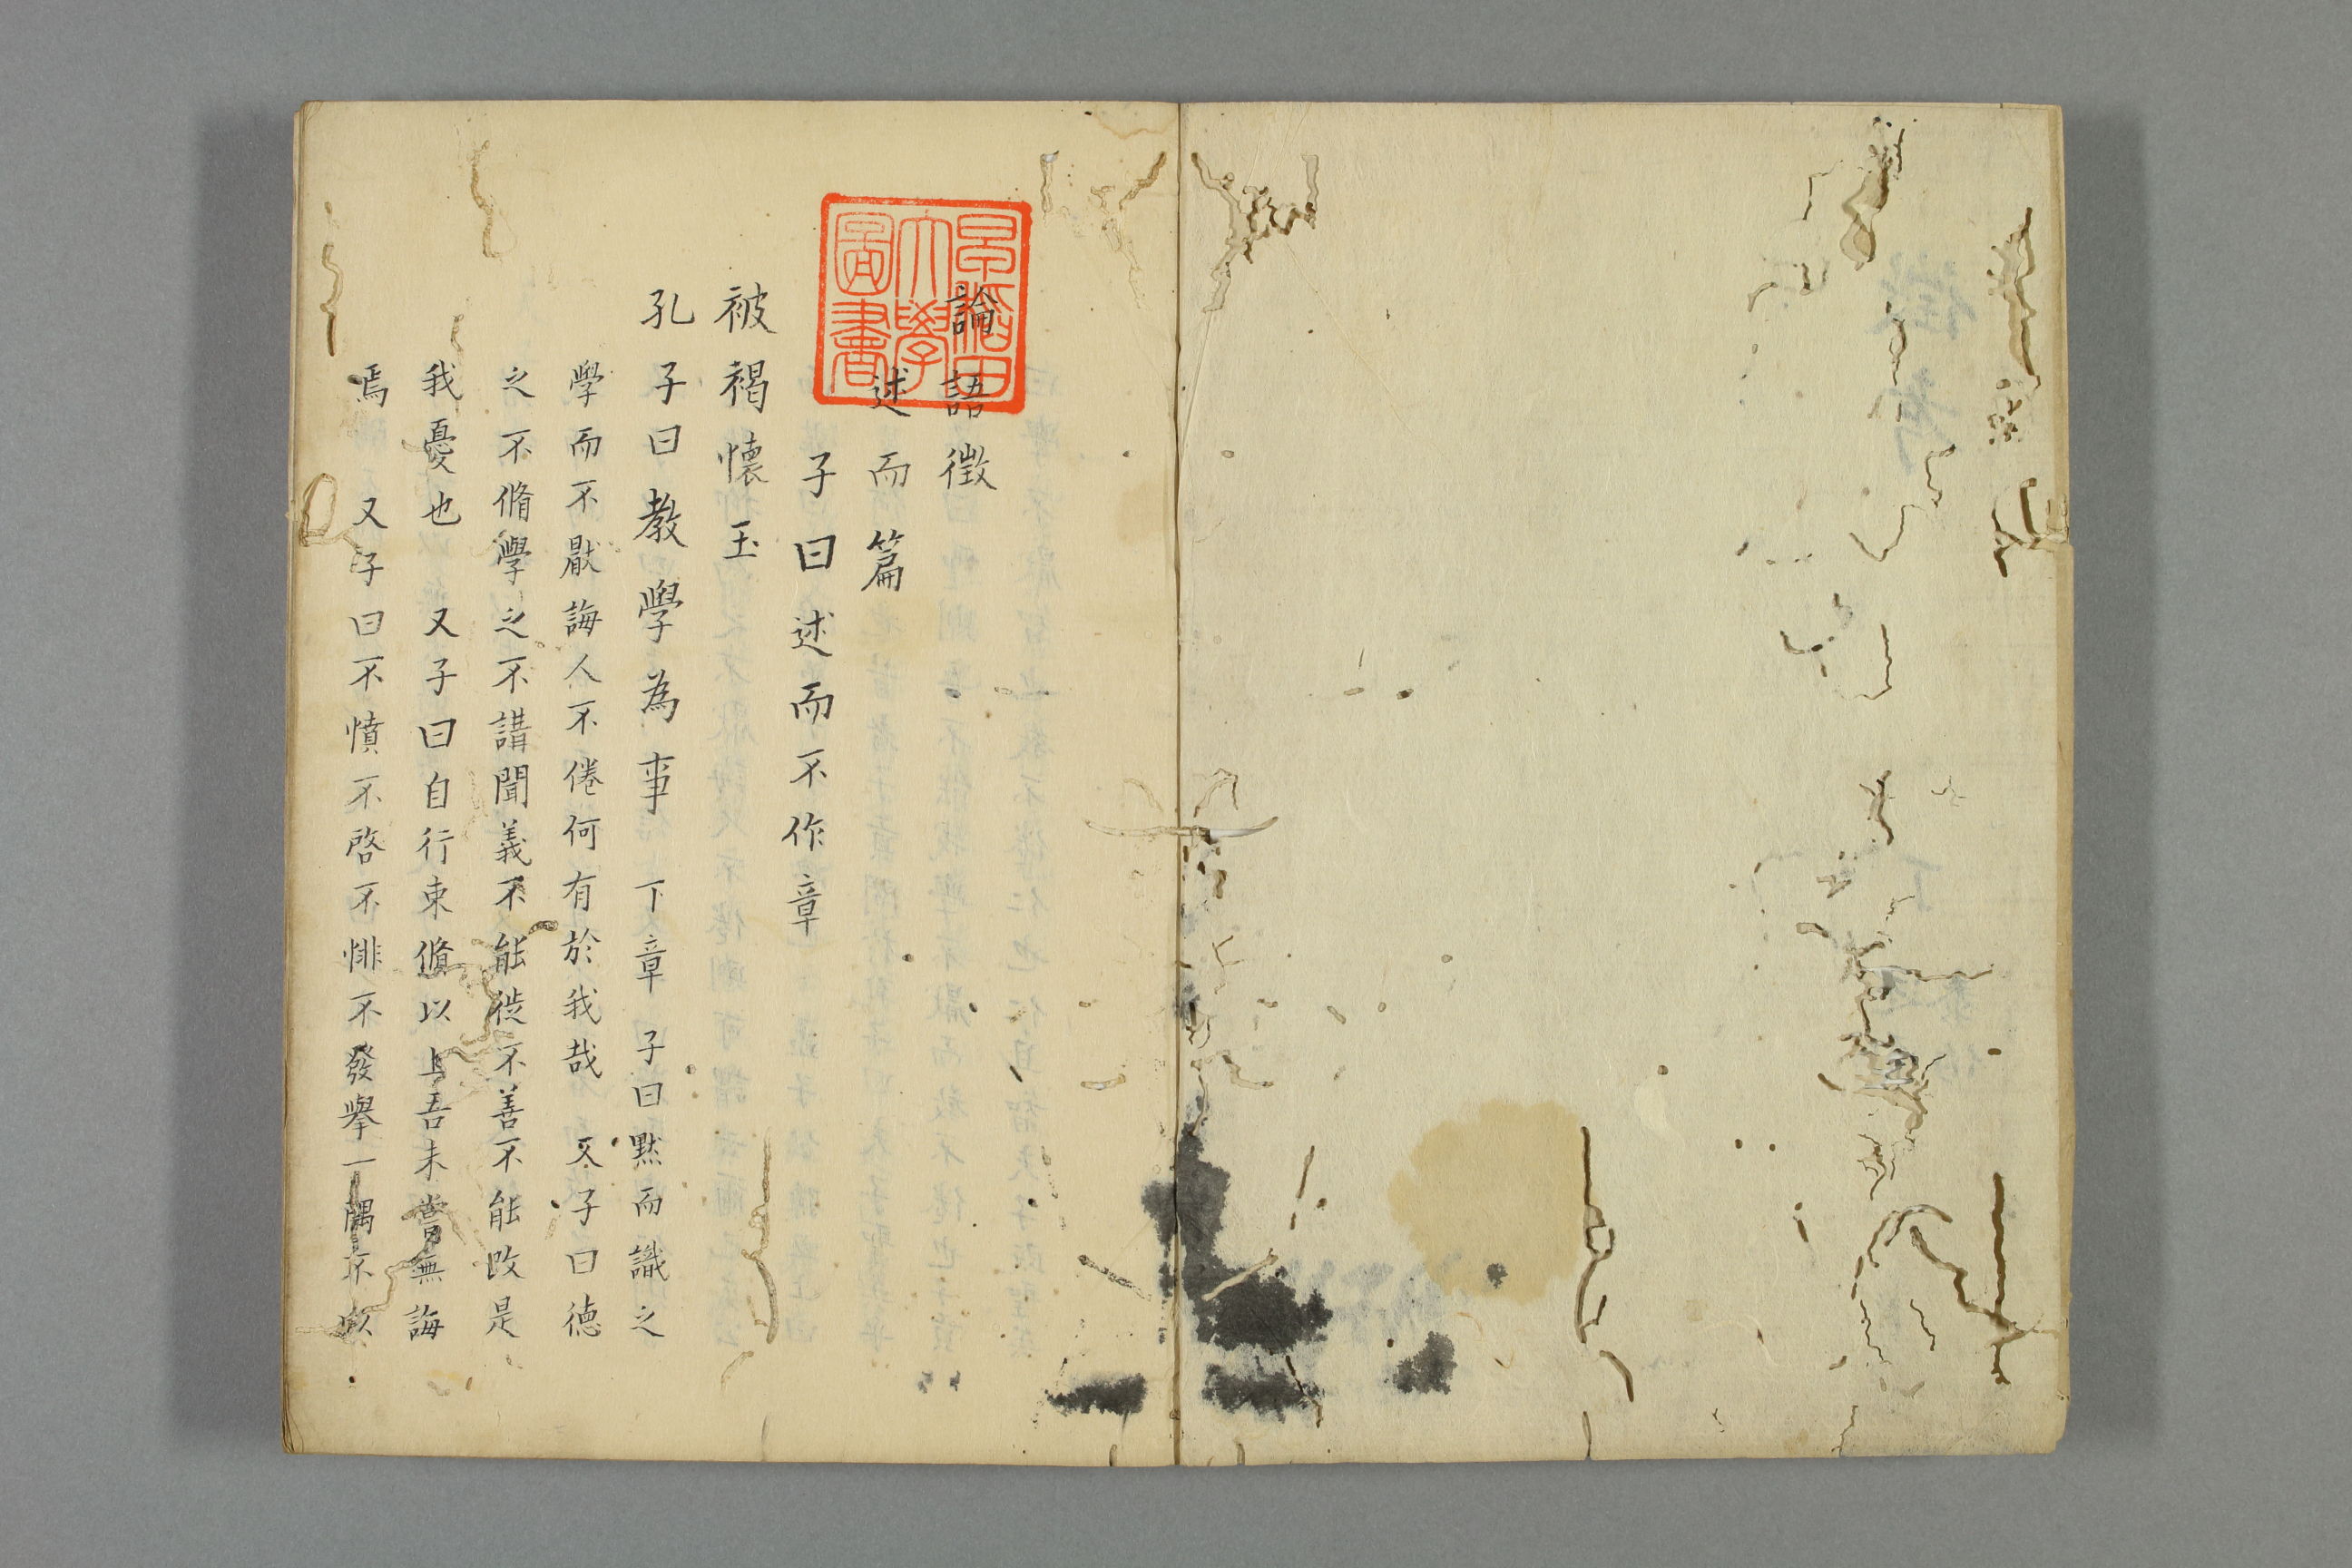 早稲田
大學
圖書
論語徴
述而篇
子曰述而不作章
被褐懐玉
孔子曰教學為事 下章 子曰黙而識之
學而不厭誨人不倦何有於我哉 又子曰徳
之不脩學之不講聞義不能徙不善不能改是
我憂也 又子曰自行束脩以上吾未嘗無誨
焉 又子曰不憤不啓不悱不發擧一隅不以